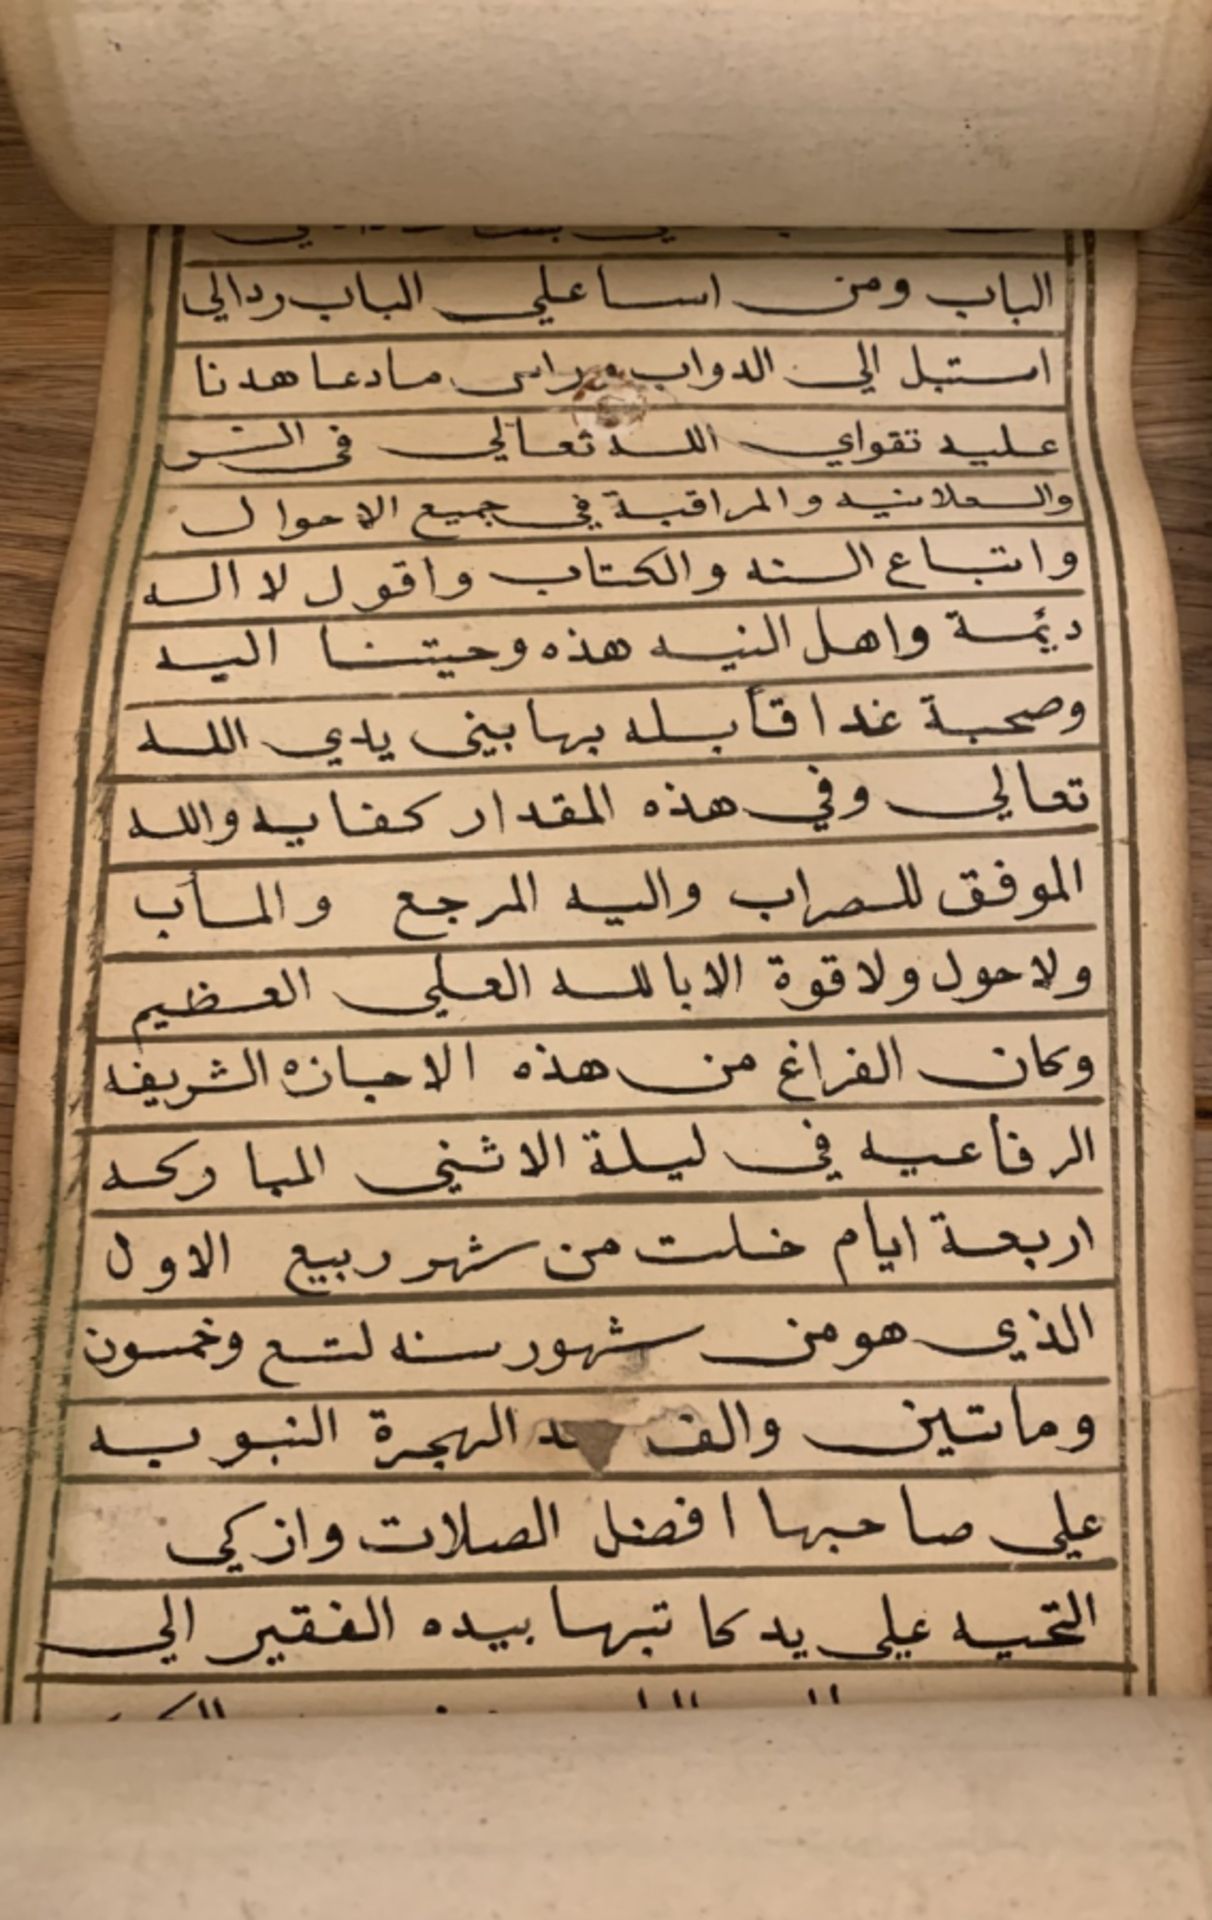 الباب ومن اسا علي الباب ردالي
استبل الي الدواب وراس مادعا هدنا
عليه تقواي الله تعالي في السر
والعلانيه والمراقبة في جميع الاحوال
واتباع السنه والكتاب واقول لا اله
دئمة واهل النيه هذه وحيتنا اليه
وصحبة غدا قأبله بها بيني يدي الله
تعالي وفي هذه المقدار كفايه والله
الموفق للصراب واليه المرجع والمأب
ولاحول ولاقوة الابالله العلي العظيم
وكان الفراغ من هذه الاجازه الشريفه
الرفاعيه في ليلة الاثني المباركه
اربعة ايام خلت من شهر ربيع الاول
الذي هومن شهور سنه لتسع وخمسون
وماتين والف الهجرة النبويه
علي صاحبها افضل الصلات وازكي
التحيه علي يد كاتبها بيده الفقير الي